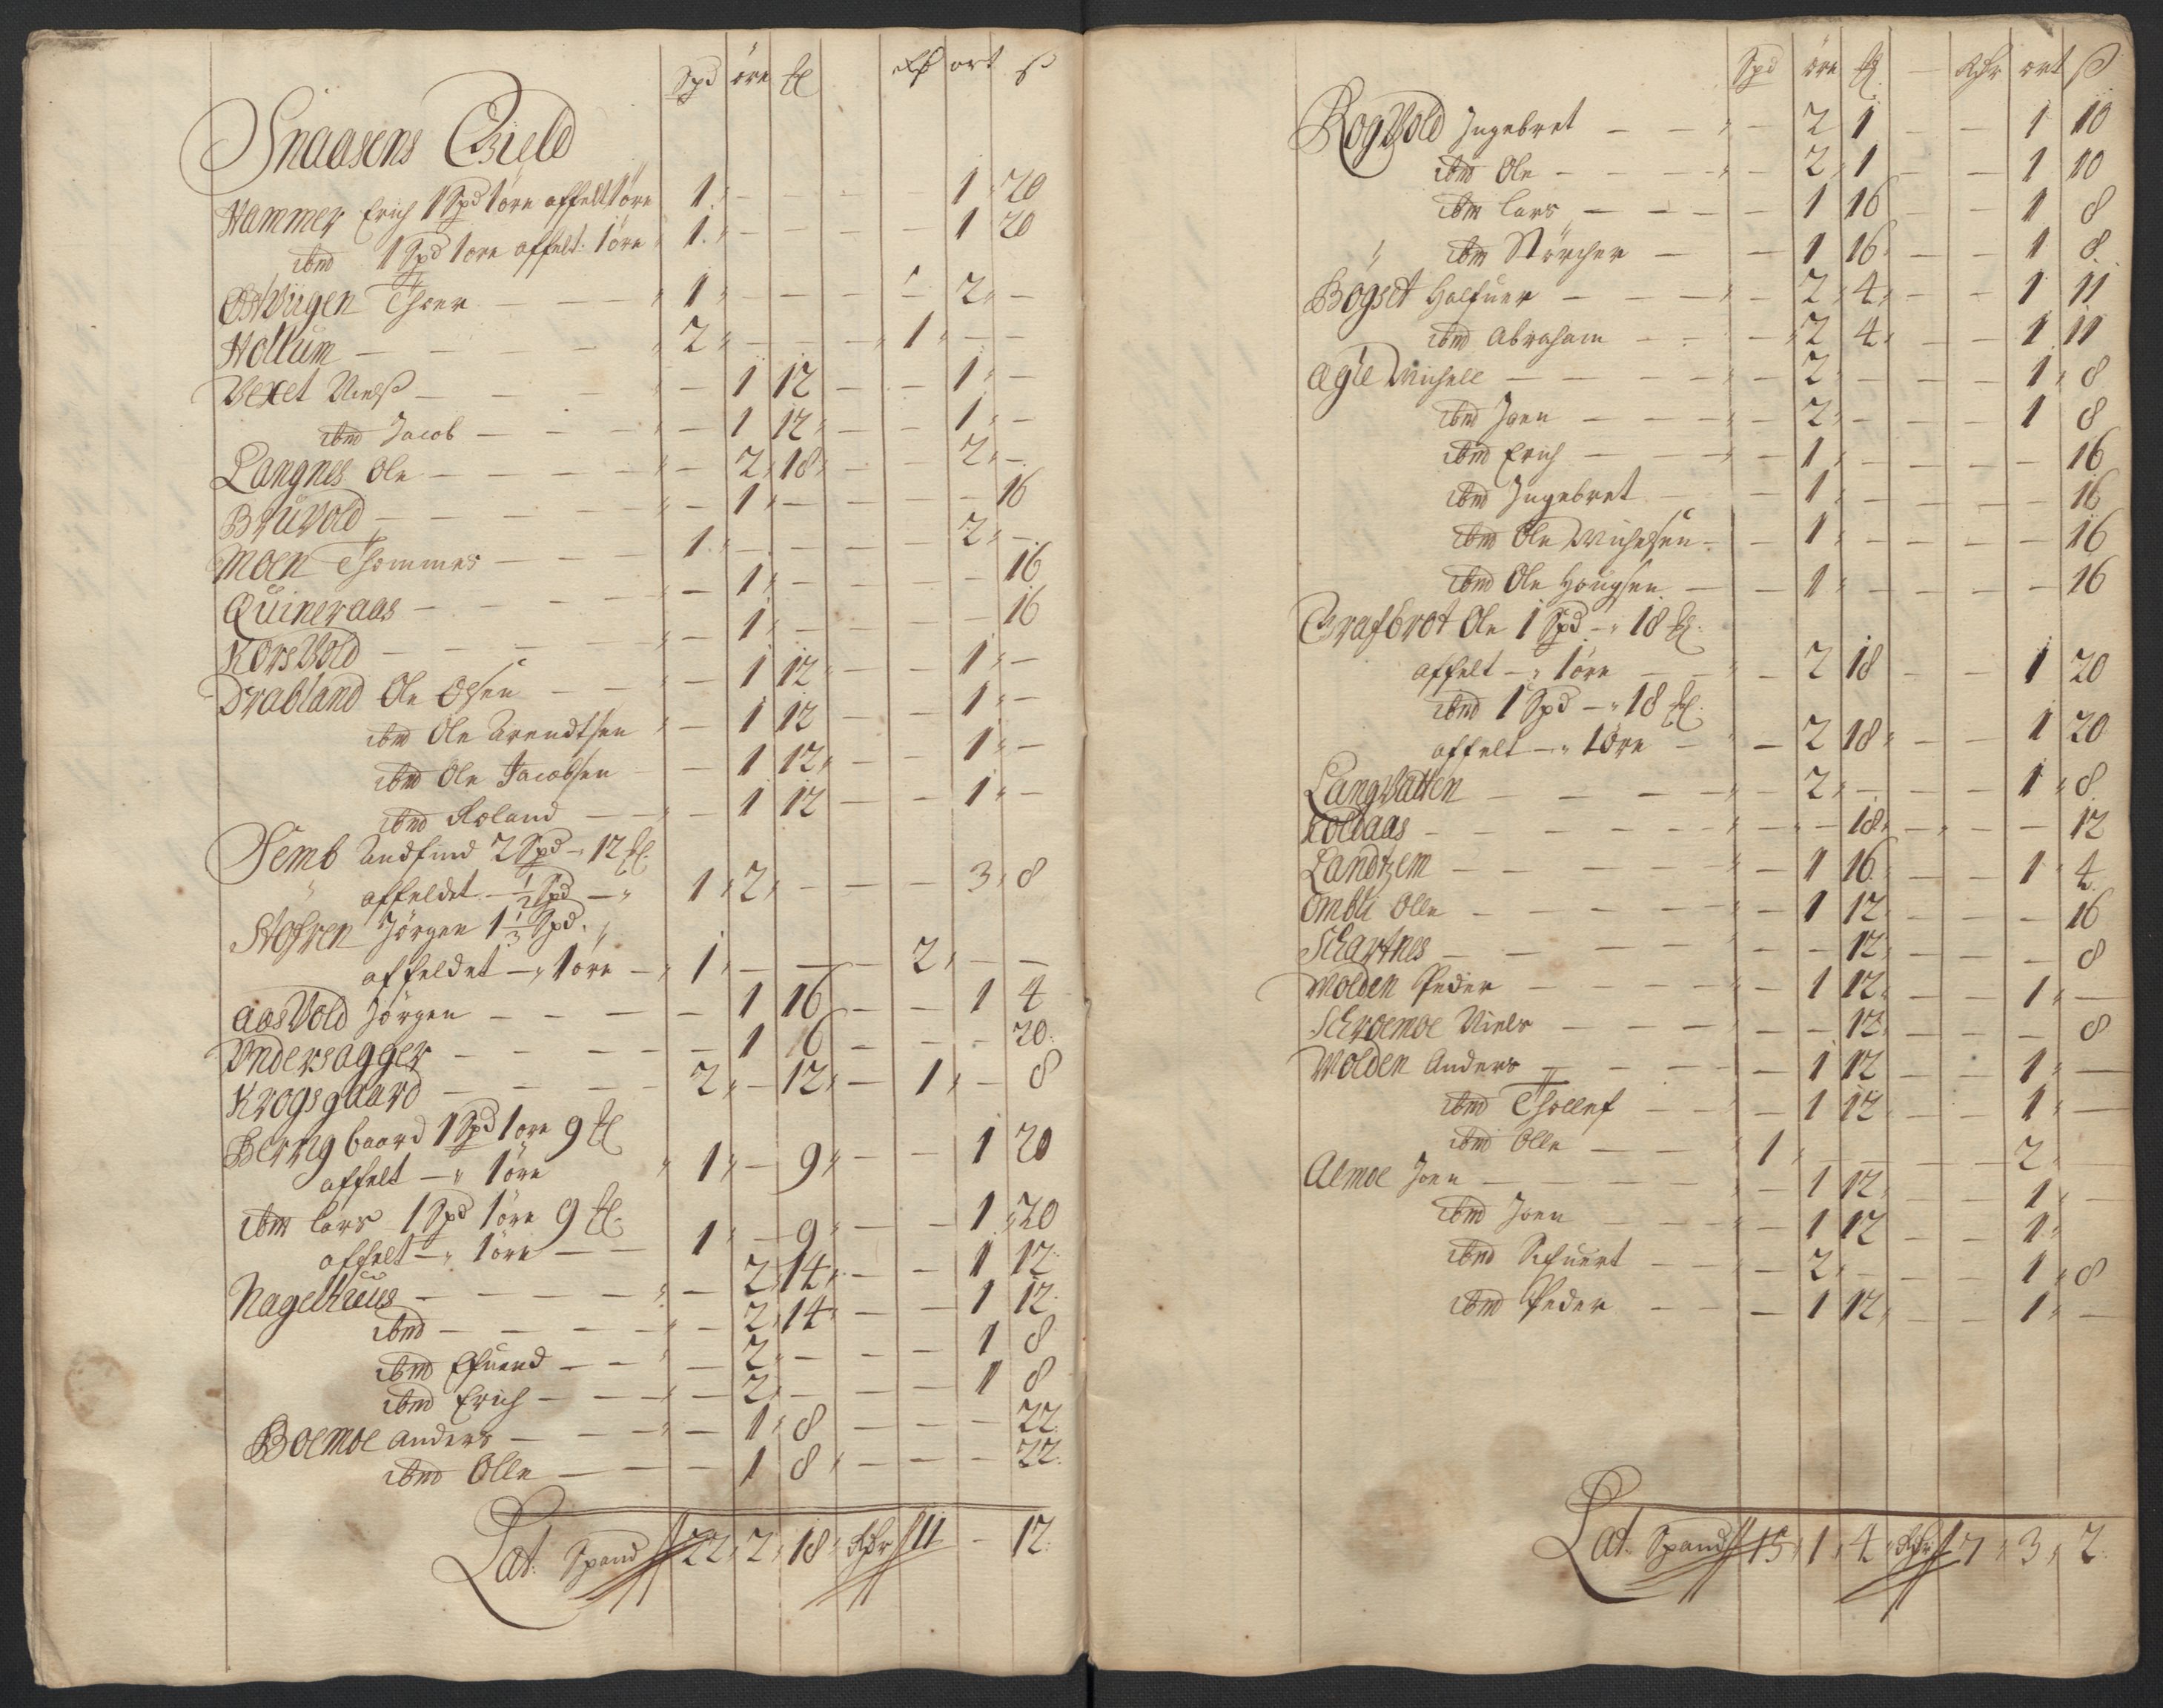 Spd öre Rdr ort ß
Snaasens Gield
Hammer Erich 1 Spd 1 öre affelt 1 öre 1 - - - 1 20
ibmd 1 Spd 1 öre affelt 1 öre 1 - - - 1 20
Østviigen Thoer - - 1 - - - 2 -
Hollum - - 2 - - 1 - -
Vexet Nielß - - 1 12 - - 1 -
ibmd Jacob - - 1 12 - - 1 -
Langnes Ole - - 2 18 - - 2 -
Bruvold - - 1 - - - 16
Moen Thommes - - 1 - - - 2 -
Quineraas - - 1 - - - 16
Korsvold - - 1 - - - 16
Drabland Ole Olsen - - 1 12 - - 1 -
ibmd Ole Arendtsen - 1 12 - - 1 -
ibmd Ole Jacobsen - 1 12 - - 1 -
ibmd Roland - - 1 12 - - 1 -
Semb Andfind 2 Spd - 12
affeldet - 1/2 Spd - 1 2 - - - 3 8
Jörgen 1 1/3 Spd
affeldet - 1 öre - 1 - - - 2 - -
Aasvold Jörgen - - 1 16 - - 1 4
Undersagger - - 1 6 - - - 20
Krogsgaard - - 2 - 12 - 1 - 8
baard 1 Spd 1 öre 9
affelt - 1 öre 1 - 9 - - 1 20
ibm Lars 1 Spd 1 öre 9
affelt - 1 öre - - 1 - 9 - - 1 20
Nagelhuus - - 2 14 - - 1 12
ibmd - - 2 14 - - 1 12
ibmd - - 2 - - - 1 8
ibmd Erich - - 2 - - - 1 8
Boemoe Anders - - 1 8 - - - 22
ibmd Olle - - 1 8 - - - 22
Lat. Spand 22 2 18 Rdr 11 - 12
Spd öre - Rdr ort ß
Rogvold Ingebret - - 2 1 - - 1 10
ibmd Ole - - 2 1 - - 1 10
ibm Lars - - 1 16 - - 1 8
ibm Störcher - - 1 16 - - 1 8
Bögset Halfuer - - 2 4 - - 1 11
ibmd Abraham - - 2 4 - - 1 11
Agle Michell - - 2 - - - 1 8
ibmd Joen - - 2 - - - 1 8
ibmd Erich - - 1 - - - - 16
ibmd Ingebret - - 1 - - - - 16
ibmd Ole Michelsen - - 1 - - - - 16
ibmd Ole Hougsen - - 1 - - - - 16
Grafbrot Ole 1 Spd - 18
affelt - 1 öre - - 2 18 - - 1 20
ibmd 1 Spd - 18
affelt - 1 öre - - 2 18 - - 1 20
Langvatten - - 2 - - - 1 8
Kollaas - - - 18 - - - 12
Landzem - - 1 16 - - 1 4
Ombli Olle - - 1 12 - - - 16
Schartnes - - - 12 - - - 8
Molden Peder - - 1 12 - - 1 -
Schroemoe Niels - - - 12 - - - 8
Molden Anders - - 1 12 - - 1 -
ibmd Thollef - - 1 12 - - 1 -
ibmd Olle - - 1 - - - 2 -
Almoe Joen - - 1 12 - - 1 -
ibmd Joen - - 1 12 - - 1
ibmd Sifuert - - 2 - - - 1 8
ibmd Peder - - 1 12 - - 1 -
Lat. Spand 15 1 4 Rdr 7 3 2